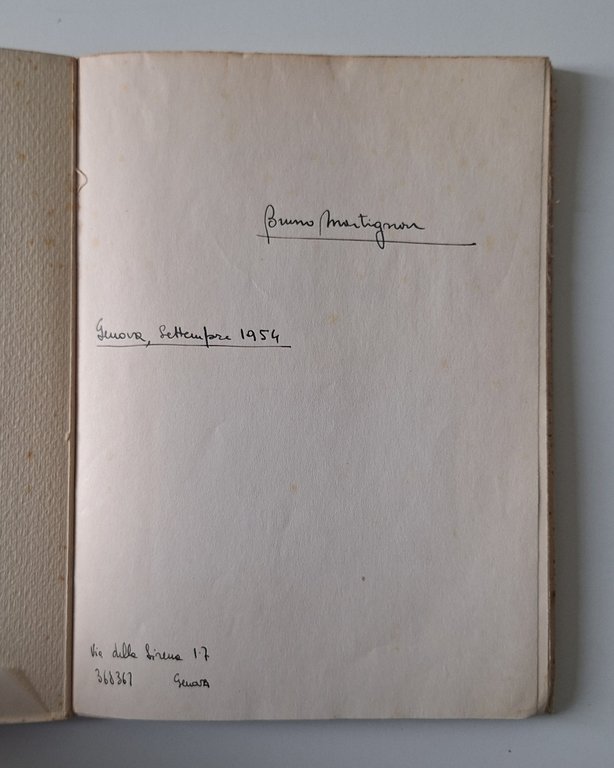 Bruno Martignon
Genova, Settembre 1954
Via della Sirena 1-7
368367 Genova